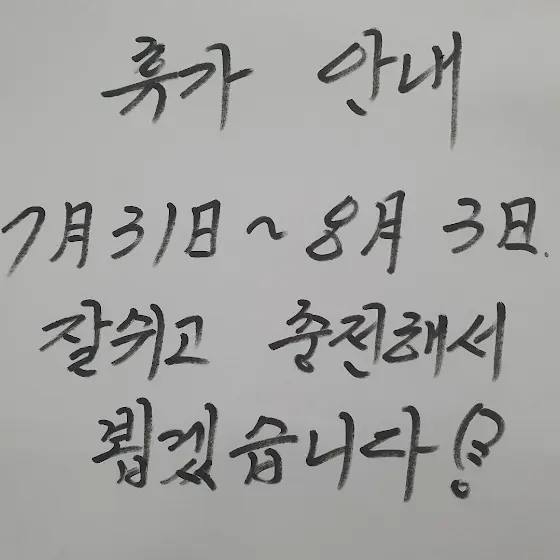 휴가 안내
7月31日~8月 3日.
잘쉬고 충전해서
뵙겠습니다!?